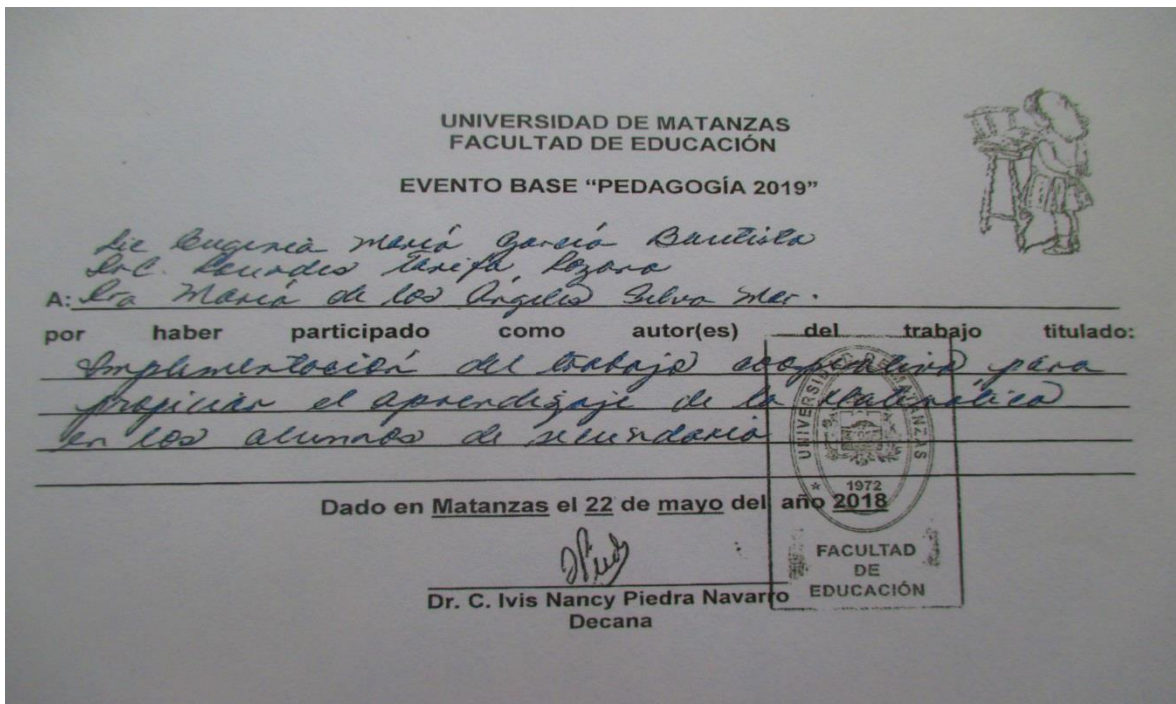 UNIVERSIDAD DE MATANZAS
FACULTAD DE EDUCACIÓN
EVENTO BASE “PEDAGOGÍA 2019”
Lic Eugenia María García Bautista
DrC. Lourdes Tarifa Lozano
A: Dra María de los Ángeles Silva
por haber participado como autor(es) del trabajo titulado:
Implementación del trabajo cooperativo para
propiciar el aprendizaje de la Matemática
en los alumnos de secundaria
Dado en Matanzas el 22 de mayo del año 2018
UNIVERSIDAD DE MATANZAS
1972
FACULTAD
DE
EDUCACIÓN
Dr. C. Ivis Nancy Piedra Navarro
Decana